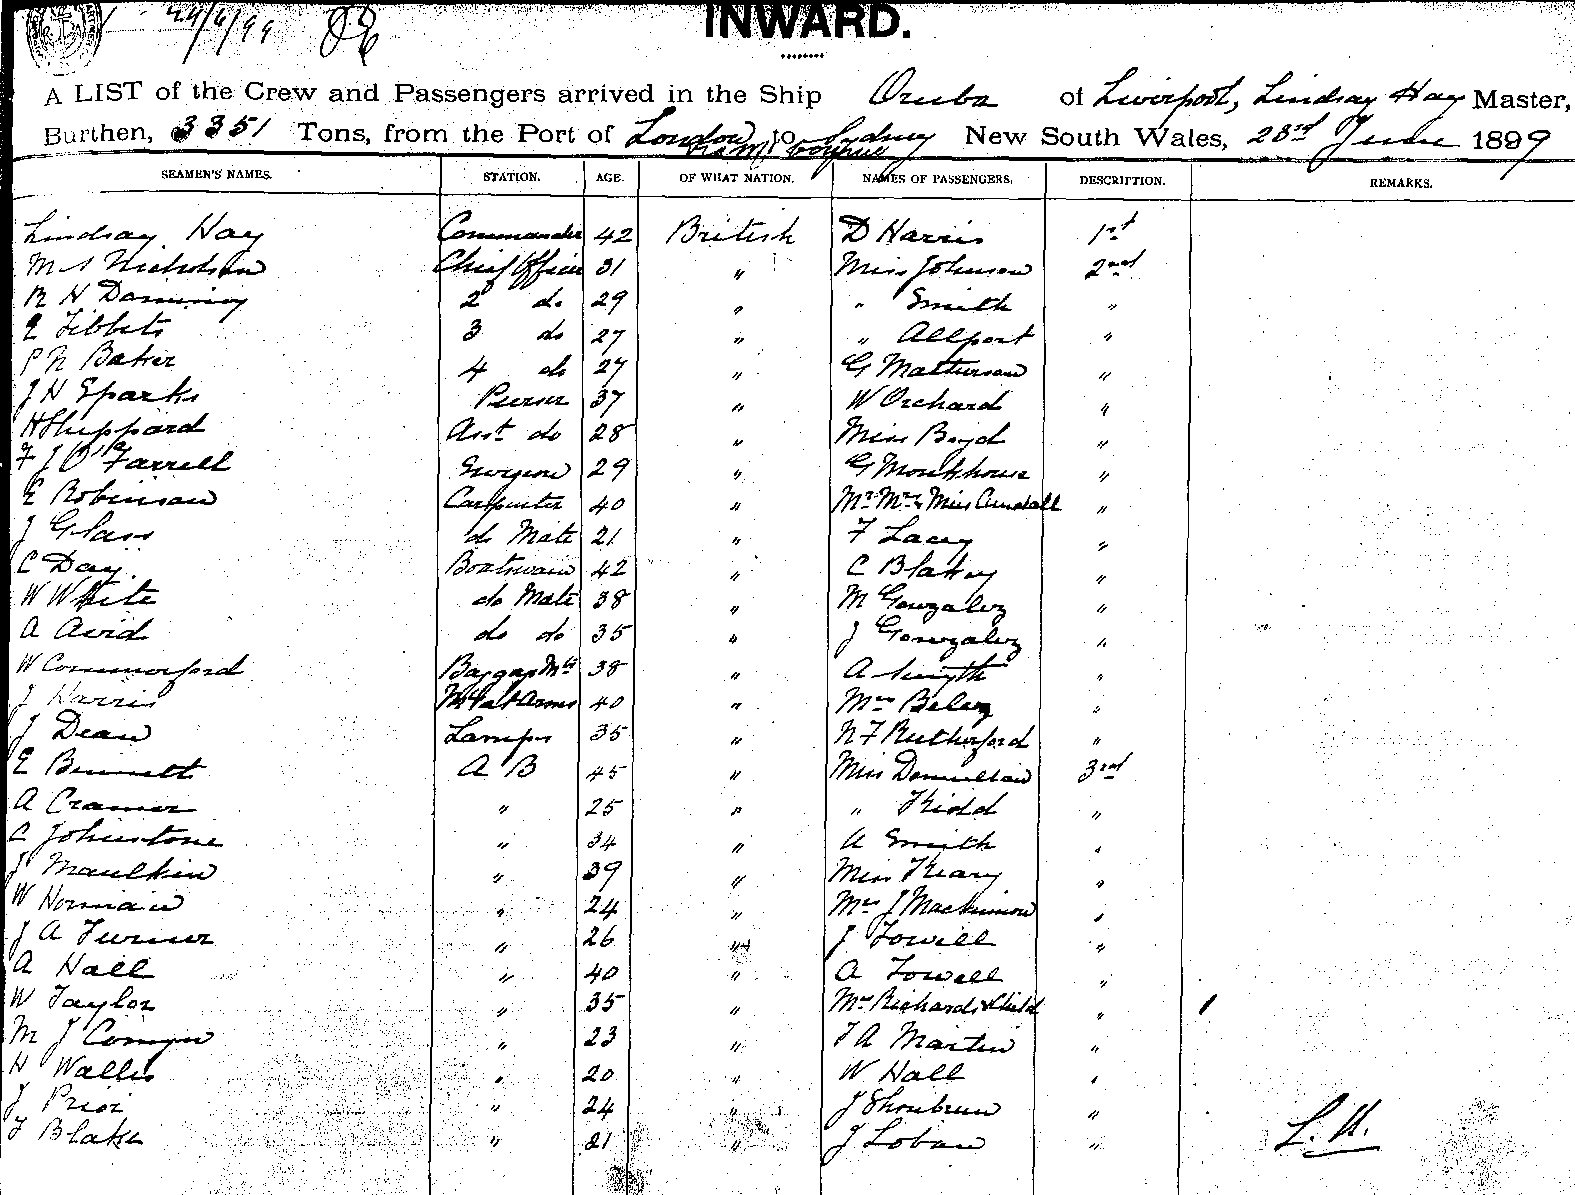 29/6/99
INWARD.
A LIST of the Crew and Passengers arrived in the Ship Oruba of Liverpool, Lindsay Hay Master,
Burthen, 3351 Tons, from the Port of London to Sydney New South Wales, 23rd June 1899
SEAMEN'S NAMES. STATION. AGE. OF WHAT NATION. NAMES OF PASSENGERS. DESCRIPTION. REMARKS.
Lindsay Hay Commander 42 British D Harris 1st
M S Nicholson Chief Officer 31 " Miss Johnson 2nd
R H Dominy 2 do 29 " " Smith "
E Tibbets 3 do 27 " " Allport "
P N Baker 4 do 27 " G Matterson "
J H Sparks Purser 37 " W Orchard "
H Sheppard Asst do 28 " Miss Boyd "
F J O'Farrell Surgeon 29 " G Monkhouse "
E Robinson Carpenter 40 " Mr Mrs & Miss Cundall "
J Glass do Mate 21 " F Lacey "
C Day Boatswain 42 " C Blakey "
W White do Mate 38 " M Gonzalez "
A Avid do do 35 " J Gonzalez "
W Commorford Baggage Mr 38 " A Smyth "
J Harris Mr at Arms 40 " Mrs Beley "
J Dean Lamps 35 " N F Rutherford "
E Bennett A B 45 " Miss 3rd
A Cramer " 25 " " Kidd "
C Johnstone " 34 " A Smith "
J Maulkin " 39 " Miss Keary "
W Norman " 24 " Mrs J Mackinnon "
J A Turner " 26 " J Towill "
A Hall " 40 " A Towell "
W Taylor " 35 " Mrs Richards & Child "
M J Comyn " 23 " F A Martin "
H Wallis " 20 " W Hall "
J Prior " 24 " J Shonbrun "
F Blake " 21 " J Loban "
L.H.